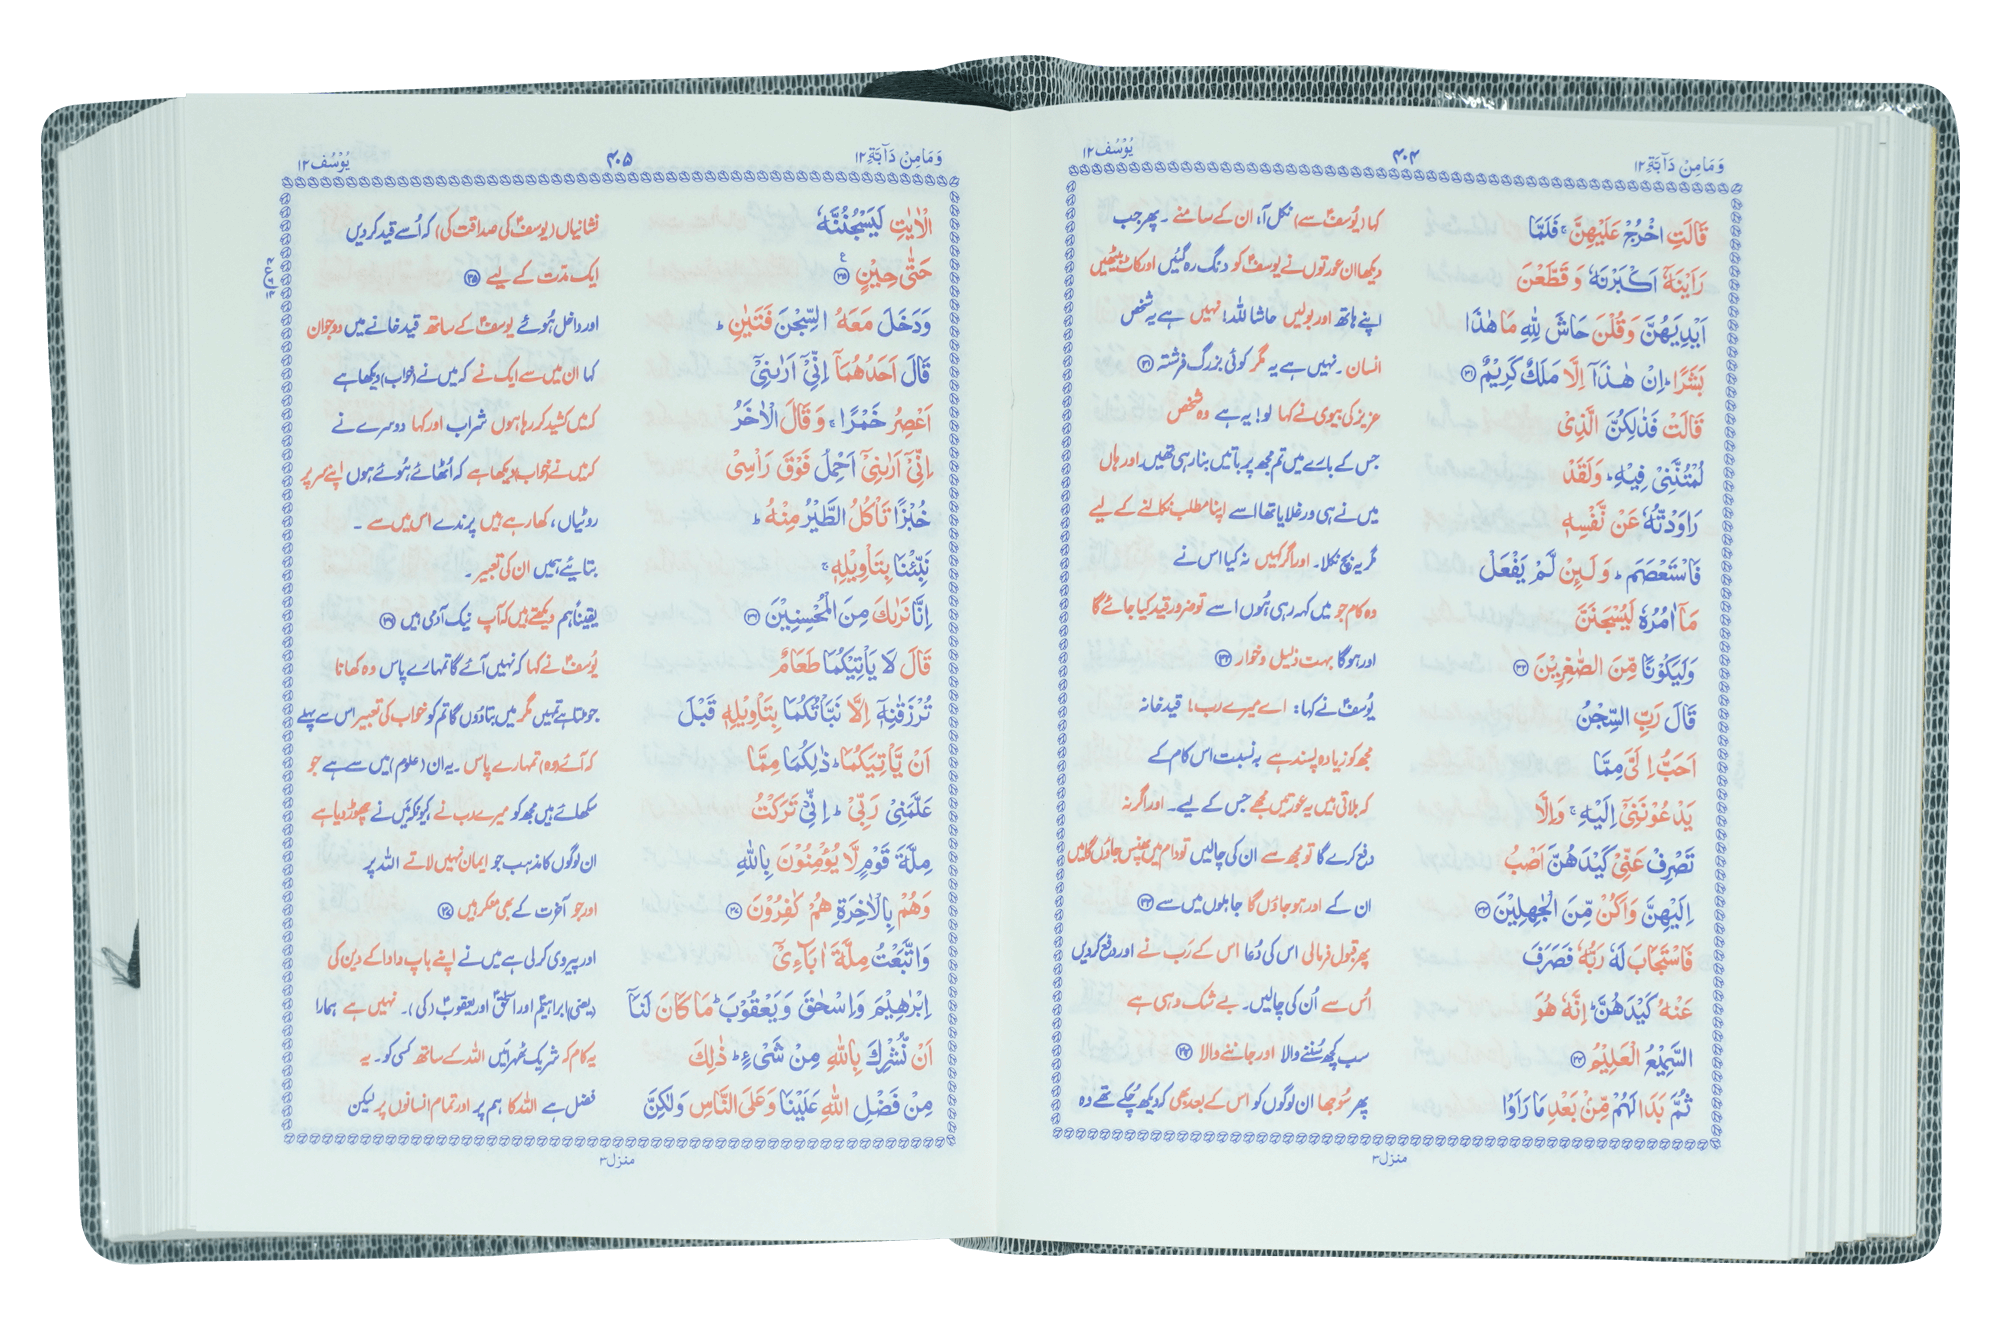 وَمَا مِنْ دَآبَّةٍ ١٢
٤٠٤
يُوْسُف ١٢
قَالَتِ اخْرُجْ عَلَيْهِنَّ ۚ فَلَمَّا
کہا (یُوسفؑ سے) نکل آ، ان کے سامنے ۔ پھر جب
رَاَيْنَهٗٓ اَكْبَرْنَهٗ وَ قَطَّعْنَ
دیکھا ان عورتوں نے یوسفؑ کو دنگ رہ گئیں اور کاٹ بیٹھیں
اَيْدِيَهُنَّ وَقُلْنَ حَاشَ لِلّٰهِ مَا هٰذَا
اپنے ہاتھ اور بولیں حاشا للہ! نہیں ہے یہ شخص
بَشَرًا ؕ اِنْ هٰذَآ اِلَّا مَلَكٌ كَرِيْمٌ ﴿۳۱﴾
انسان ۔ نہیں ہے یہ مگر کوئی بزرگ فرشتہ ﴿۳۱﴾
قَالَتْ فَذٰلِكُنَّ الَّذِىْ
عزیز کی بیوی نے کہا لو! یہ ہے وہ شخص
لُمْتُنَّنِىْ فِيْهِ ؕ وَلَقَدْ
جس کے بارے میں تم مجھ پر باتیں بنا رہی تھیں اور ہاں
رَاوَدْتُّهٗ عَنْ نَّفْسِهٖ
میں نے ہی ورغلایا تھا اسے اپنا مطلب نکالنے کے لیے
فَاسْتَعْصَمَ ؕ وَلَئِنْ لَّمْ يَفْعَلْ
مگر یہ بچ نکلا۔ اور اگر کہیں نہ کیا اس نے
مَآ اٰمُرُهٗ لَيُسْجَنَنَّ
وہ کام جو میں کہہ رہی ہُوں اسے تو ضرور قید کیا جائے گا
وَلَيَكُوْنًا مِّنَ الصّٰغِرِيْنَ ﴿۳۲﴾
اور ہوگا بہت ذلیل و خوار ﴿۳۲﴾
قَالَ رَبِّ السِّجْنُ
یُوسفؑ نے کہا: اے میرے رب! قید خانہ
اَحَبُّ اِلَىَّ مِمَّا
مجھ کو زیادہ پسند ہے بہ نسبت اس کام کے
يَدْعُوْنَنِىْٓ اِلَيْهِ ۚ وَاِلَّا
کہ بلاتی ہیں یہ عورتیں مجھے جس کے لیے۔ اور اگر نہ
تَصْرِفْ عَنِّىْ كَيْدَهُنَّ اَصْبُ
دفع کرے گا تو مجھ سے ان کی چالیں تو دام میں پھنس جاؤں گا میں
اِلَيْهِنَّ وَاَكُنْ مِّنَ الْجٰهِلِيْنَ ﴿۳۳﴾
ان کے اور ہو جاؤں گا جاہلوں میں سے ﴿۳۳﴾
فَاسْتَجَابَ لَهٗ رَبُّهٗ فَصَرَفَ
پھر قبول فرمالی اس کی دُعا اس کے رَب نے اور دفع کردیں
عَنْهُ كَيْدَهُنَّ ؕ اِنَّهٗ هُوَ
اُس سے اُن کی چالیں۔ بے شک وہی ہے
السَّمِيْعُ الْعَلِيْمُ ﴿۳۴﴾
سب کچھ سُننے والا اور جاننے والا ﴿۳۴﴾
ثُمَّ بَدَا لَهُمْ مِّنْۢ بَعْدِ مَا رَاَوُا
پھر سُوجھا ان لوگوں کو اس کے بعد بھی کہ دیکھ چُکے تھے وہ
منزل ٣
وَمَا مِنْ دَآبَّةٍ ١٢
٤٠٥
يُوْسُف ١٢
الْاٰيٰتِ لَيَسْجُنُنَّهٗ
نشانیاں (یوسفؑ کی صداقت کی) کہ اُسے قید کردیں
حَتّٰى حِيْنٍ ﴿۳۵﴾ ع
ایک مدّت کے لیے ﴿۳۵﴾
وَدَخَلَ مَعَهُ السِّجْنَ فَتَيٰنِ ؕ
اور داخل ہُوئے یوسفؑ کے ساتھ قید خانے میں دو جوان
قَالَ اَحَدُهُمَآ اِنِّىْٓ اَرٰىنِىْٓ
کہا ان میں سے ایک نے کہ میں نے (خواب) دیکھا ہے
اَعْصِرُ خَمْرًا ۚ وَقَالَ الْاٰخَرُ
کہ میں کشید کر رہا ہوں شراب اور کہا دوسرے نے
اِنِّىْٓ اَرٰىنِىْٓ اَحْمِلُ فَوْقَ رَاْسِىْ
کہ میں نے (خواب) دیکھا ہے کہ اُٹھائے ہُوئے ہوں اپنے سر پر
خُبْزًا تَاْكُلُ الطَّيْرُ مِنْهُ ؕ
روٹیاں، کھا رہے ہیں پرندے اس میں سے ۔
نَبِّئْنَا بِتَاْوِيْلِهٖ ۚ
بتائیے ہمیں ان کی تعبیر ۔
اِنَّا نَرٰىكَ مِنَ الْمُحْسِنِيْنَ ﴿۳۶﴾
یقیناً ہم دیکھتے ہیں کہ آپ نیک آدمی ہیں ﴿۳۶﴾
قَالَ لَا يَاْتِيْكُمَا طَعَامٌ
یُوسفؑ نے کہا کہ نہیں آئے گا تمہارے پاس وہ کھانا
تُرْزَقٰنِهٖٓ اِلَّا نَبَّاْتُكُمَا بِتَاْوِيْلِهٖ قَبْلَ
جو ملتا ہے تمہیں مگر میں بتا دُوں گا تم کو خواب کی تعبیر اس سے پہلے
اَنْ يَّاْتِيَكُمَا ؕ ذٰلِكُمَا مِمَّا
کہ آئے (وہ) تمہارے پاس ۔ یہ ان (علوم) میں سے ہے جو
عَلَّمَنِىْ رَبِّىْ ؕ اِنِّىْ تَرَكْتُ
سکھائے ہیں مجھ کو میرے رب نے کیونکہ میں نے چھوڑ دیا ہے
مِلَّةَ قَوْمٍ لَّا يُؤْمِنُوْنَ بِاللّٰهِ
ان لوگوں کا مذہب جو ایمان نہیں لاتے اللہ پر
وَهُمْ بِالْاٰخِرَةِ هُمْ كٰفِرُوْنَ ﴿۳۷﴾
اور جو آخرت کے بھی منکر ہیں ﴿۳۷﴾
وَاتَّبَعْتُ مِلَّةَ اٰبَآءِىْٓ
اور پیروی کرلی ہے میں نے اپنے باپ دادا کے دین کی
اِبْرٰهِيْمَ وَاِسْحٰقَ وَيَعْقُوْبَ ؕ مَا كَانَ لَنَآ
(یعنی) ابراہیمؑ اور اسحٰقؑ اور یعقوبؑ (کی)۔ نہیں ہے ہمارا
اَنْ نُّشْرِكَ بِاللّٰهِ مِنْ شَىْءٍ ؕ ذٰلِكَ
یہ کام کہ شریک ٹھہرائیں اللہ کے ساتھ کسی کو۔ یہ
مِنْ فَضْلِ اللّٰهِ عَلَيْنَا وَعَلَى النَّاسِ وَلٰكِنَّ
فضل ہے اللہ کا ہم پر اور تمام انسانوں پر لیکن
منزل ٣